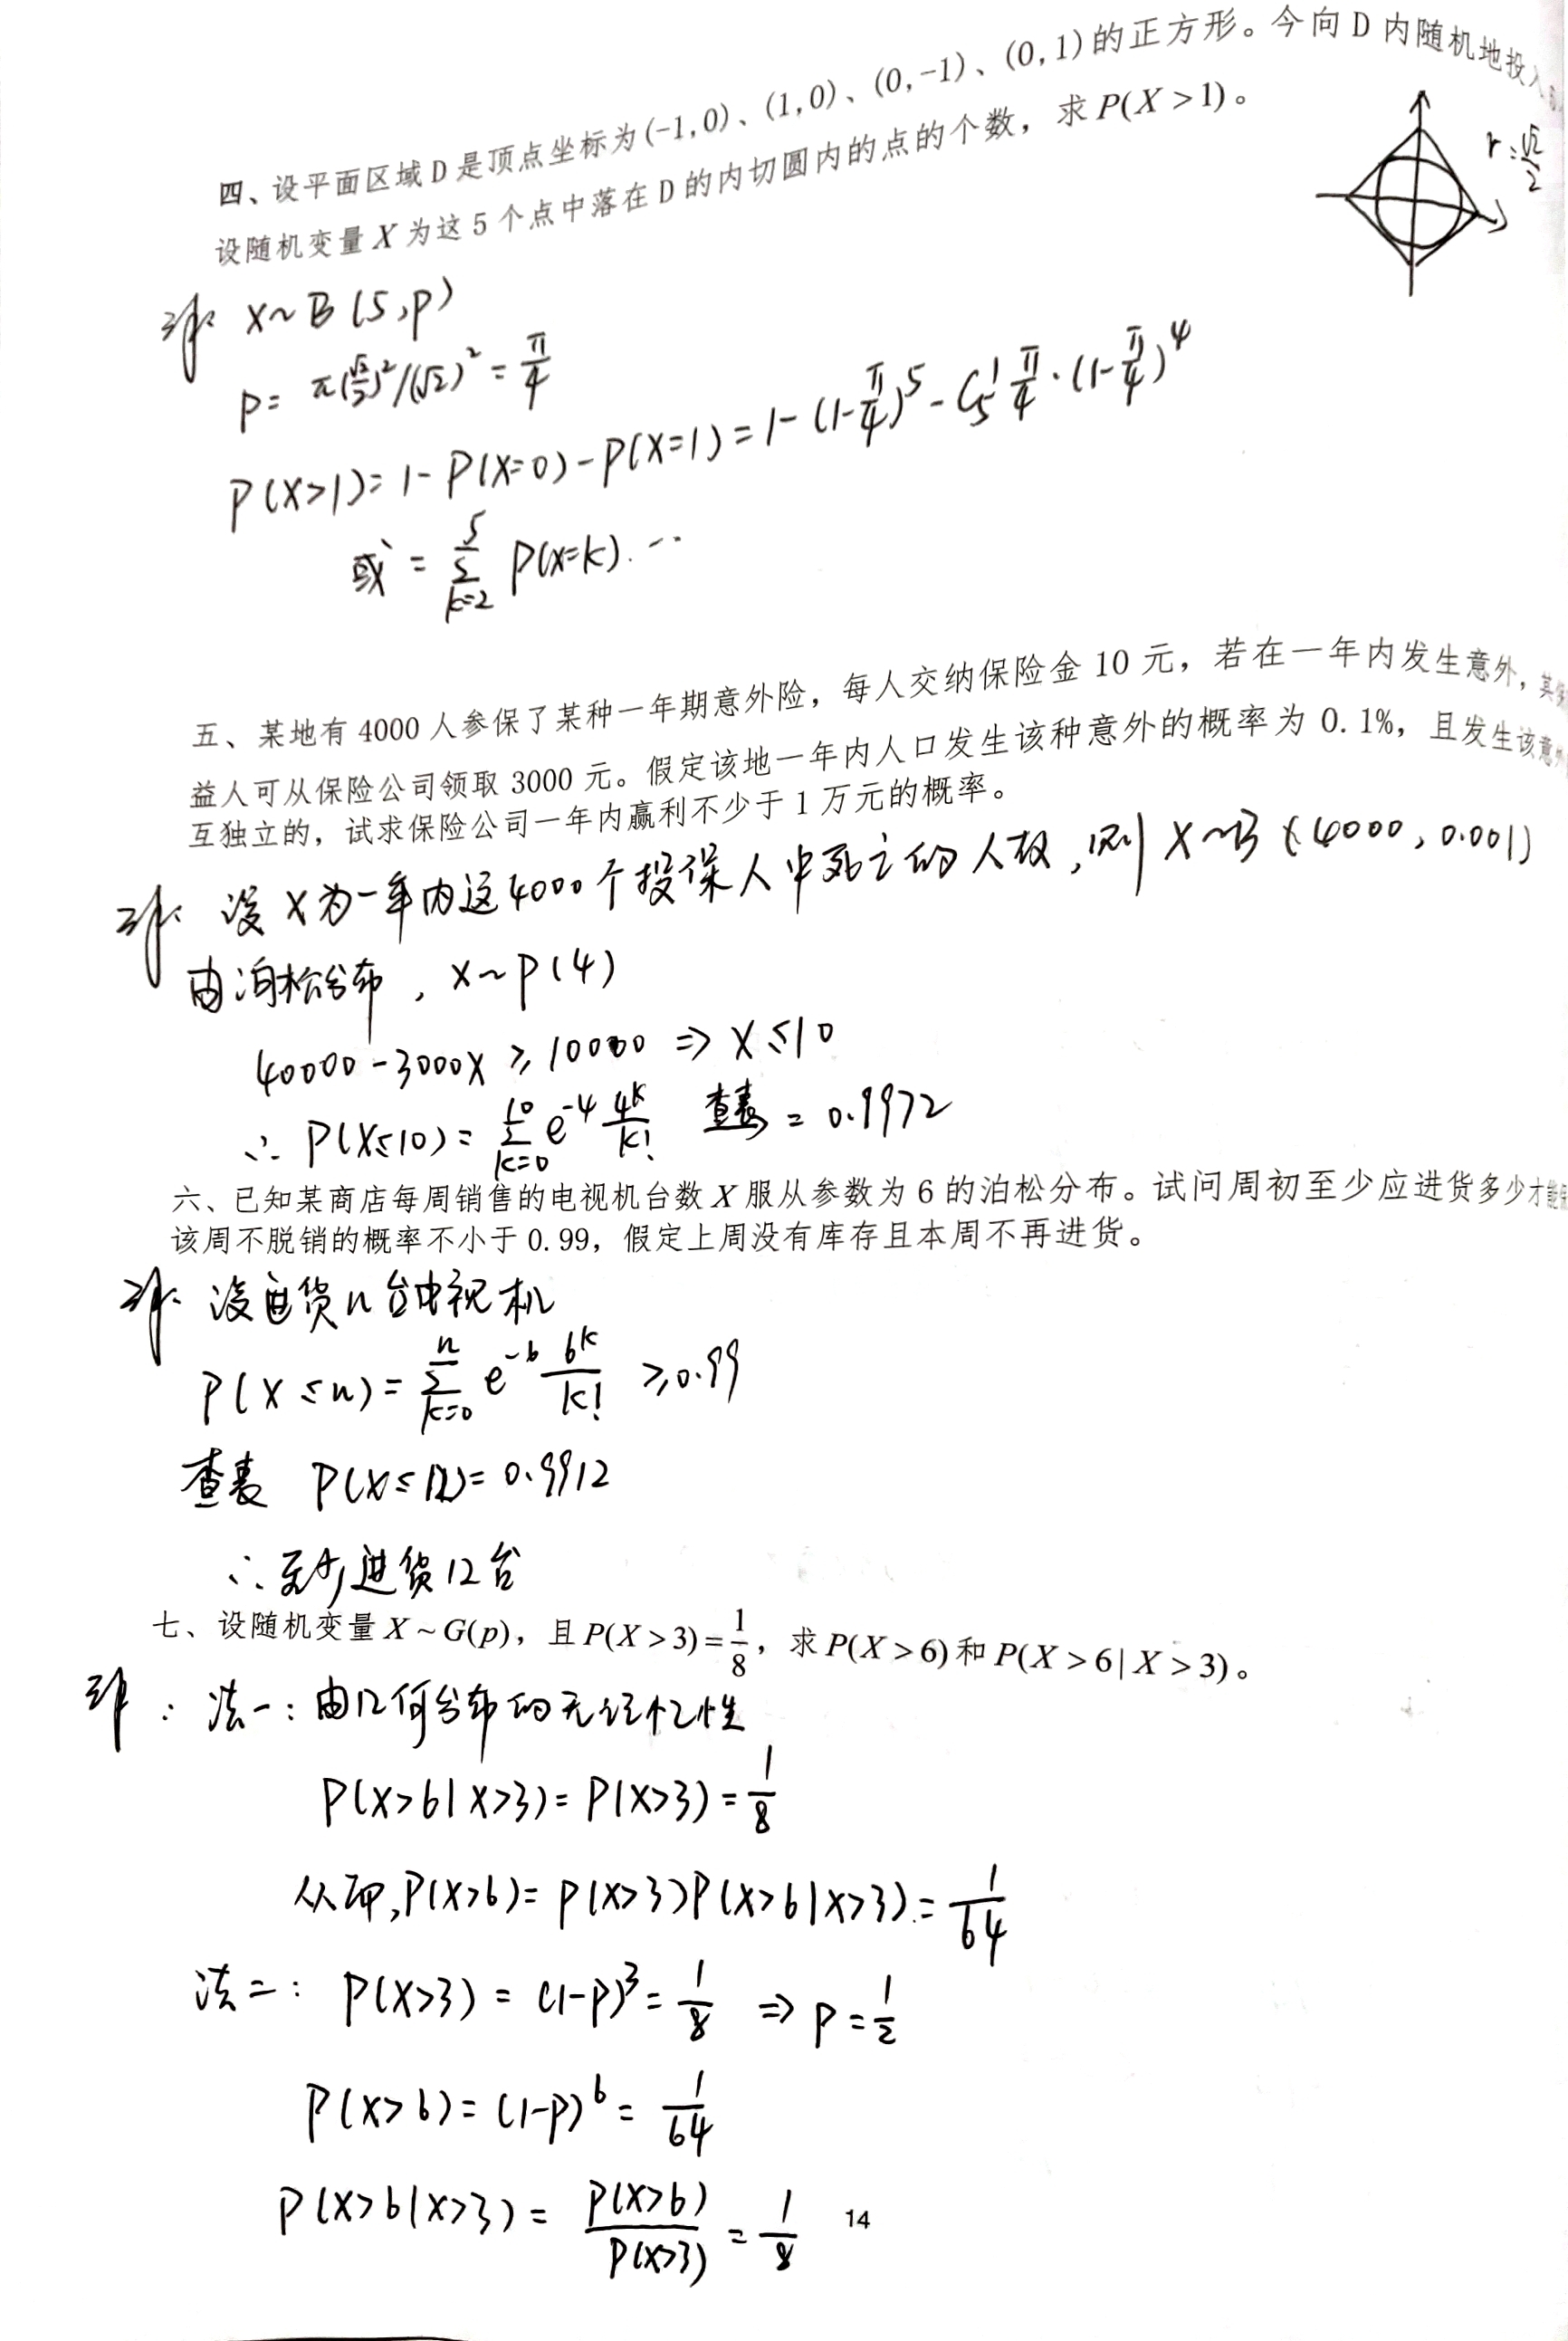 四、设平面区域 D 是顶点坐标为(-1,0)、(1,0)、(0,-1)、(0,1)的正方形。今向 D 内随机地投入
设随机变量 X 为这 5 个点中落在 D 的内切圆内的点的个数，求 P(X>1)。
r=√2/2
解: X~B(5,p)
p= π(√2/2)²/(√2)² = π/4
P(X>1)=1-P(X=0)-P(X=1)=1-(1-π/4)^5-C_5^1 π/4·(1-π/4)^4
或 = Σ_{k=2}^{5} P(X=k)...
五、某地有 4000 人参保了某种一年期意外险，每人交纳保险金 10 元，若在一年内发生意外，其
益人可从保险公司领取 3000 元。假定该地一年内人口发生该种意外的概率为 0.1%，且发生该意外
互独立的，试求保险公司一年内赢利不少于 1 万元的概率。
解: 设 X 为一年内这4000个投保人中死亡的人数,则 X~B(4000, 0.001)
由泊松分布, X~P(4)
40000-3000X ≥ 10000 ⇒ X≤10
∴ P(X≤10)= Σ_{k=0}^{10} e^{-4} 4^k/k! 查表 = 0.9972
六、已知某商店每周销售的电视机台数 X 服从参数为 6 的泊松分布。试问周初至少应进货多少才能
该周不脱销的概率不小于 0.99，假定上周没有库存且本周不再进货。
解: 设进货n台电视机
P(X≤n)= Σ_{k=0}^{n} e^{-6} 6^k/k! ≥0.99
查表 P(X≤12)= 0.9912
∴至少进货12台
七、设随机变量 X~G(p)，且 P(X>3)=1/8，求 P(X>6)和 P(X>6|X>3)。
解: 法一: 由几何分布的无记忆性
P(X>6|X>3)= P(X>3)=1/8
从而,P(X>6)= P(X>3)P(X>6|X>3)=1/64
法二: P(X>3) = (1-p)³=1/8 ⇒ p=1/2
P(X>6)= (1-p)^6 = 1/64
P(X>6|X>3)= P(X>6)/P(X>3) = 1/8
14